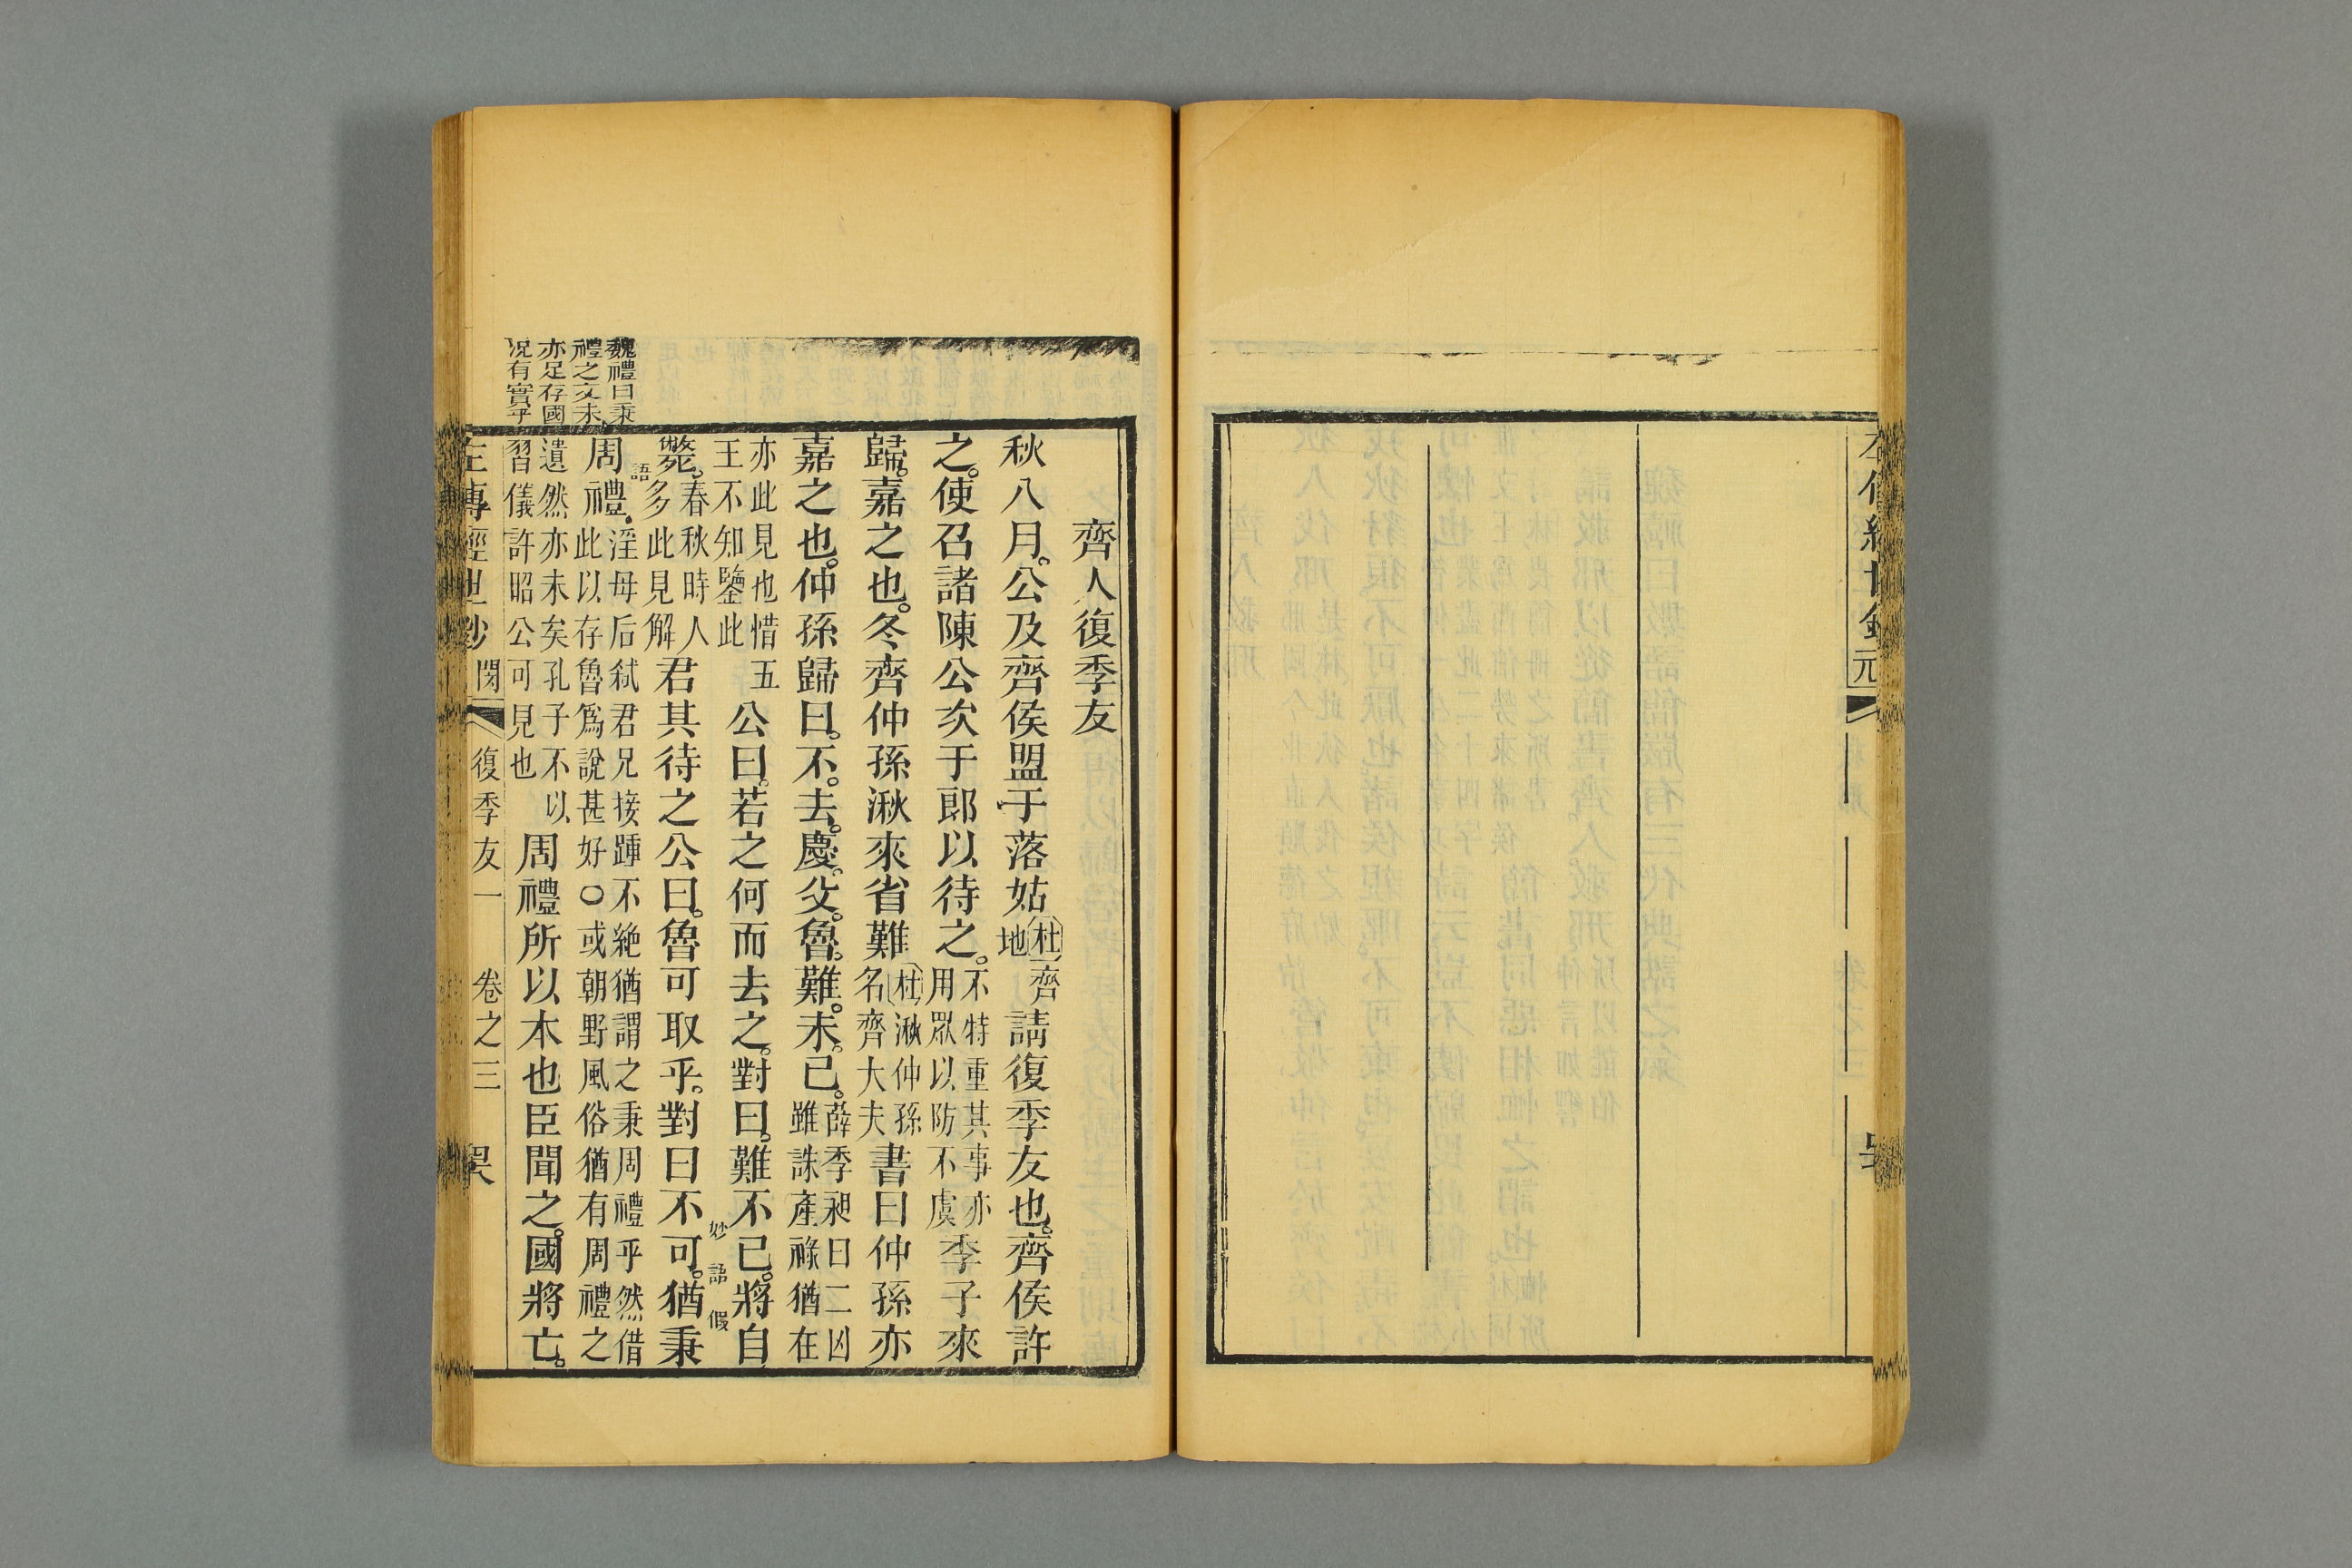 左傳經世鈔 元
齊人復季友
秋八月。公及齊侯盟于落姑杜齊地請復季友也。齊侯許
之。使召諸陳公次于郎以待之。不特重其事亦用眾以防不虞季子來
歸。嘉之也。冬齊仲孫湫來省難杜湫仲孫名齊大夫書曰仲孫亦
嘉之也。仲孫歸曰。不。去。慶。父。魯。難。未。已。薛季昶曰二凶雖誅產祿猶在
亦此見也惜五王不知鑒此公曰。若之何而去之。對曰。難不已。將自
斃。春秋時人多此見解君其待之公曰。魯可取乎。對曰不可。猶秉
妙語 假
語
周禮。淫母后弒君兄接踵不絶猶謂之秉周禮乎然借此以存魯爲說甚好〇或朝野風俗猶有周禮之
遺然亦未矣孔子不以習儀許昭公可見也周禮所以本也臣聞之。國將亡。
魏禮曰秉
禮之文未
亦足存國
况有實乎
左傳經世鈔 閔 復季友一 卷之三